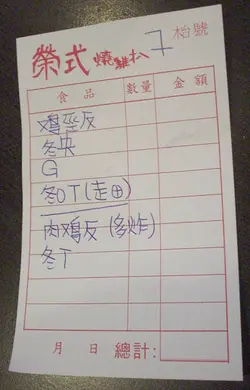 榮式燒雞扒 7 枱號
食品 數量 金額
鸡巠反
冬央
G
冬OT(走田)
肉鸡反(多炸)
冬T
月 日 總計: